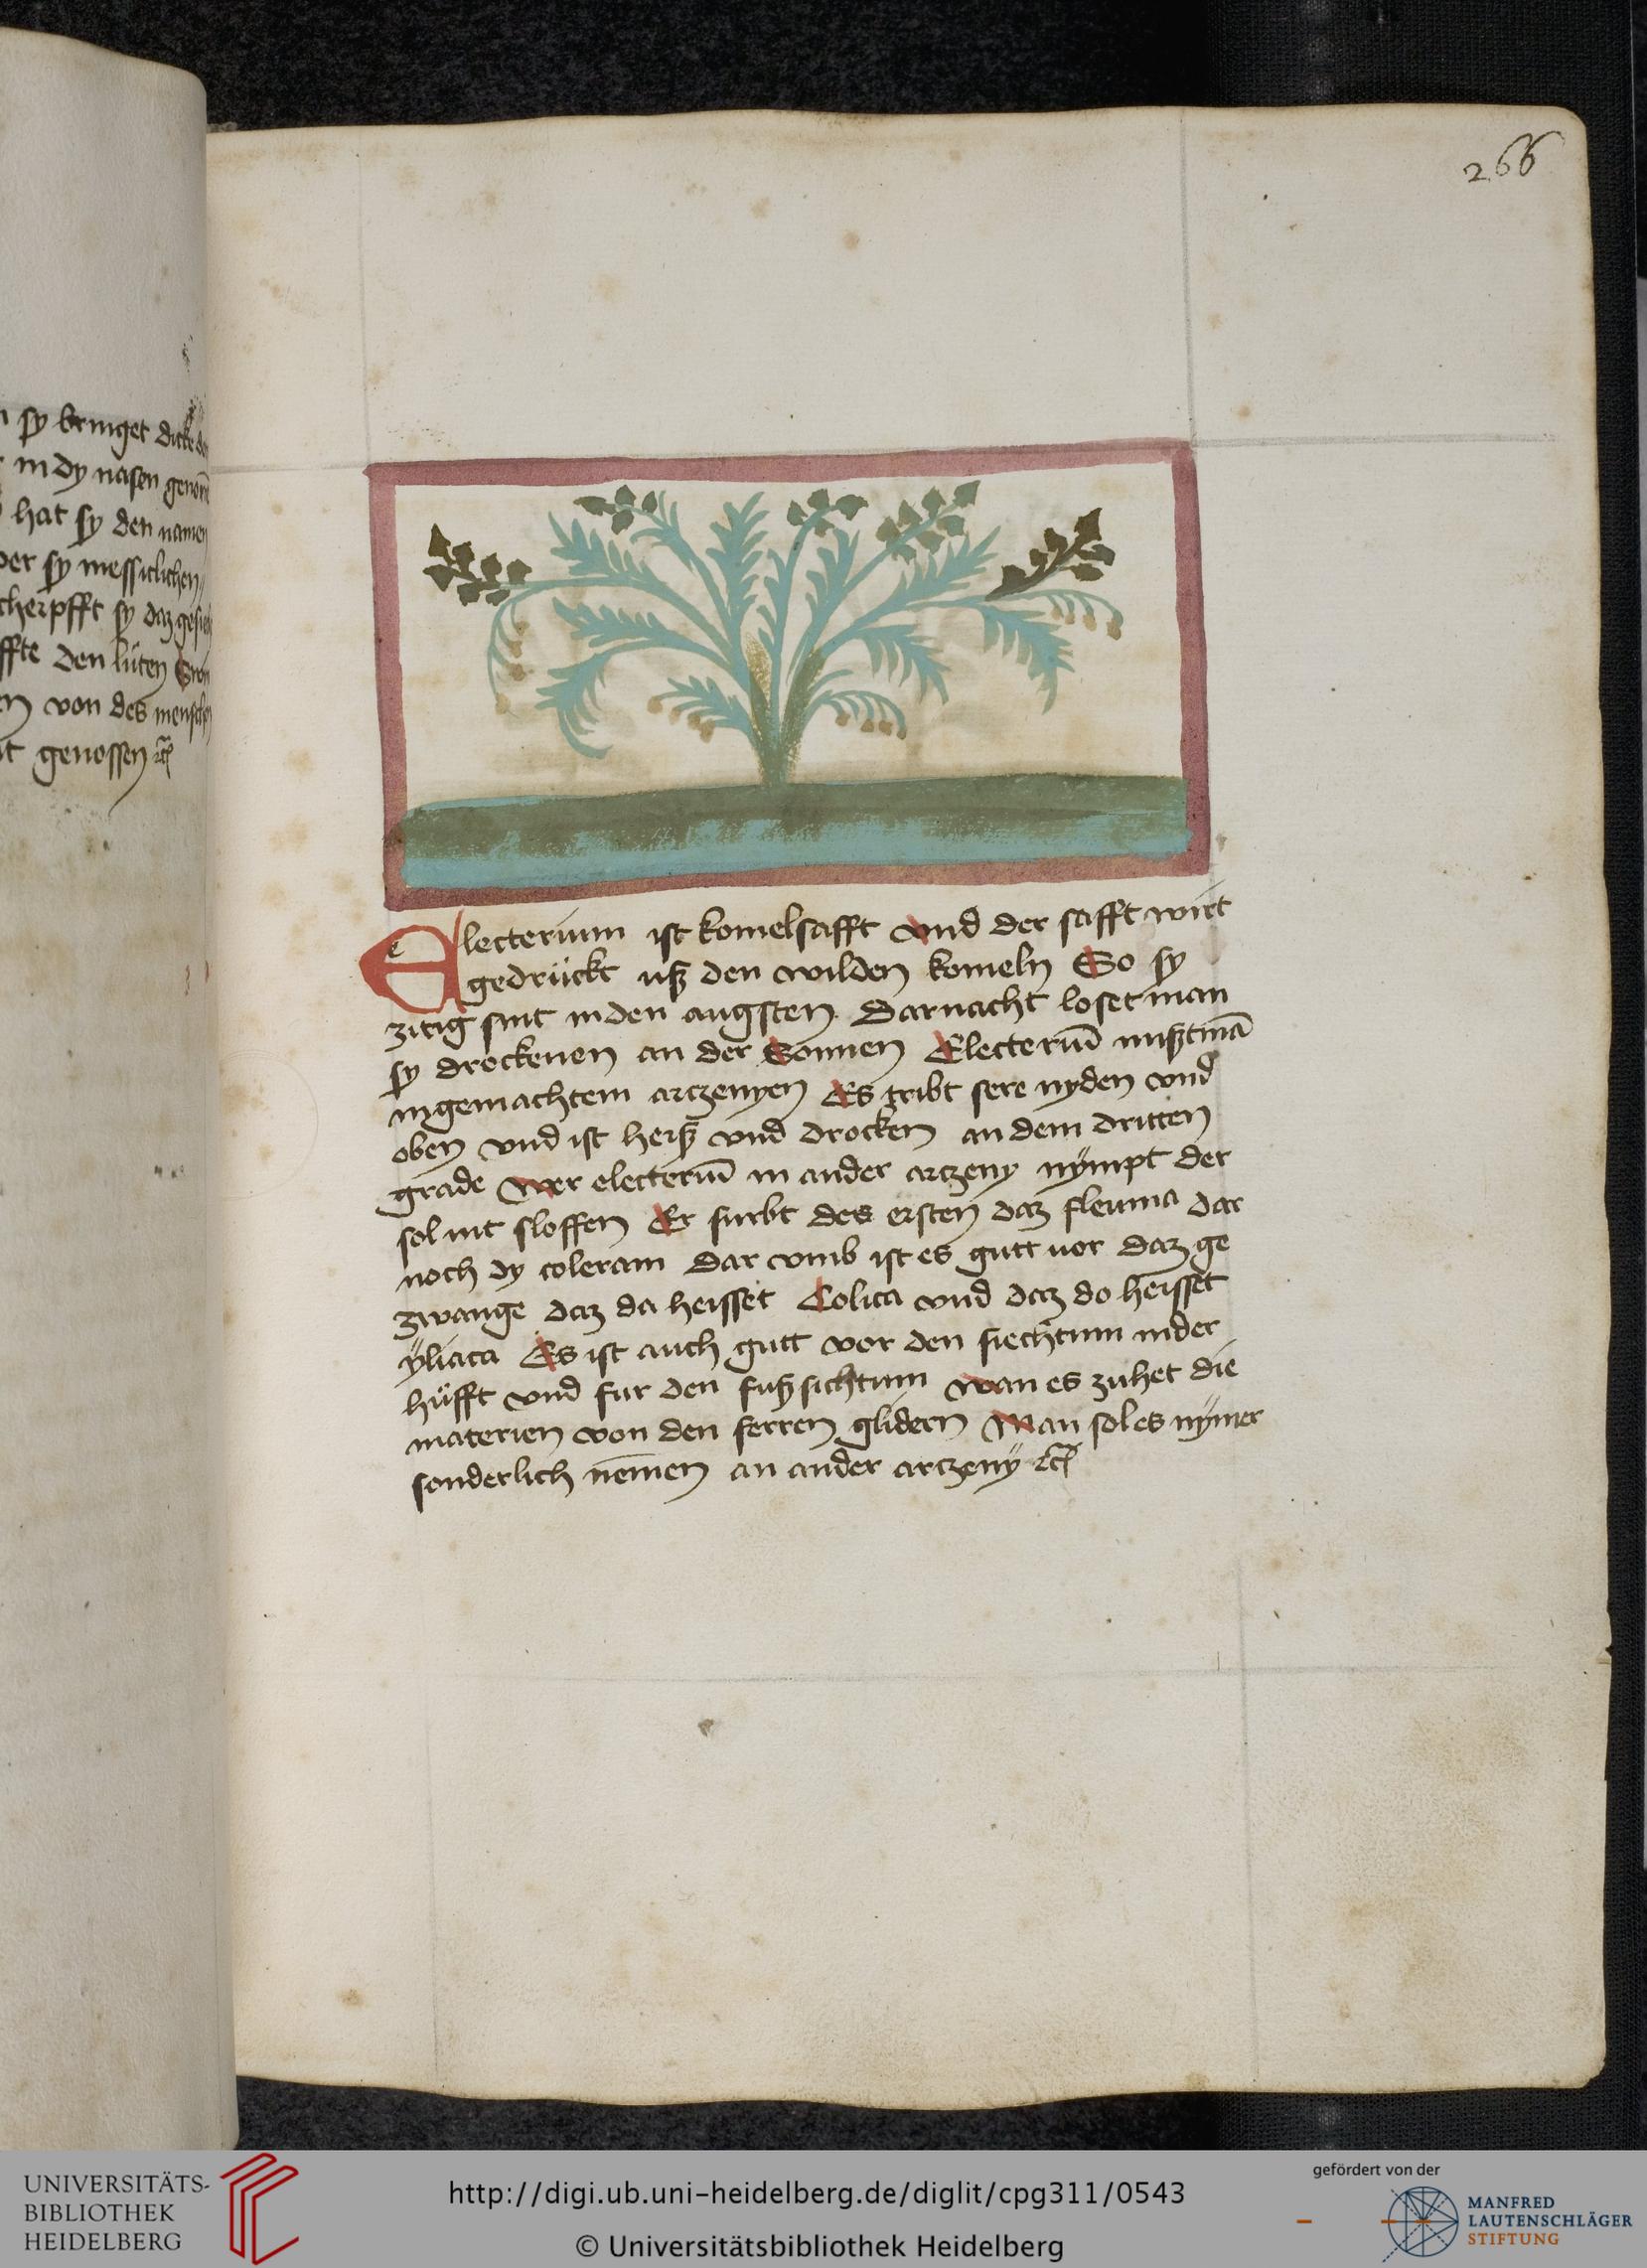 266
sy bringet dicke
in dy nasen
hat sy den namen
sy messiclichen
sy daz
den lüten
von des
genossen
Electerium ist komelsafft vnd der safft wirt
gedrückt uß den wilden komeln So sy
zitig sint in den augsten Darnacht loset man
sy drockenen an der Sonnen Electeriū mißt mā
ingemachtem arczenyen Es tribt sere nyden vnd
oben vnd ist heiß vnd drocken an dem dritten
grade Wer electeriū in ander arczeny nÿmpt der
sol nit sloffen Er furbt des ersten daz fleuma dar
noch dy coleram Dar vmb ist es gutt vor daz ge
zwange daz da heisset Colica vnd daz do heisset
ÿliaca Es ist auch gutt vor den siechtum in der
hüfft vnd fur den fußsichtum Wan es zuhet die
materien von den ferren glidern Man sol es nÿmer
sonderlich nemen an ander arczenÿ
UNIVERSITÄTS-
BIBLIOTHEK
HEIDELBERG
http://digi.ub.uni-heidelberg.de/diglit/cpg311/0543
© Universitätsbibliothek Heidelberg
gefördert von der
MANFRED
LAUTENSCHLÄGER
STIFTUNG